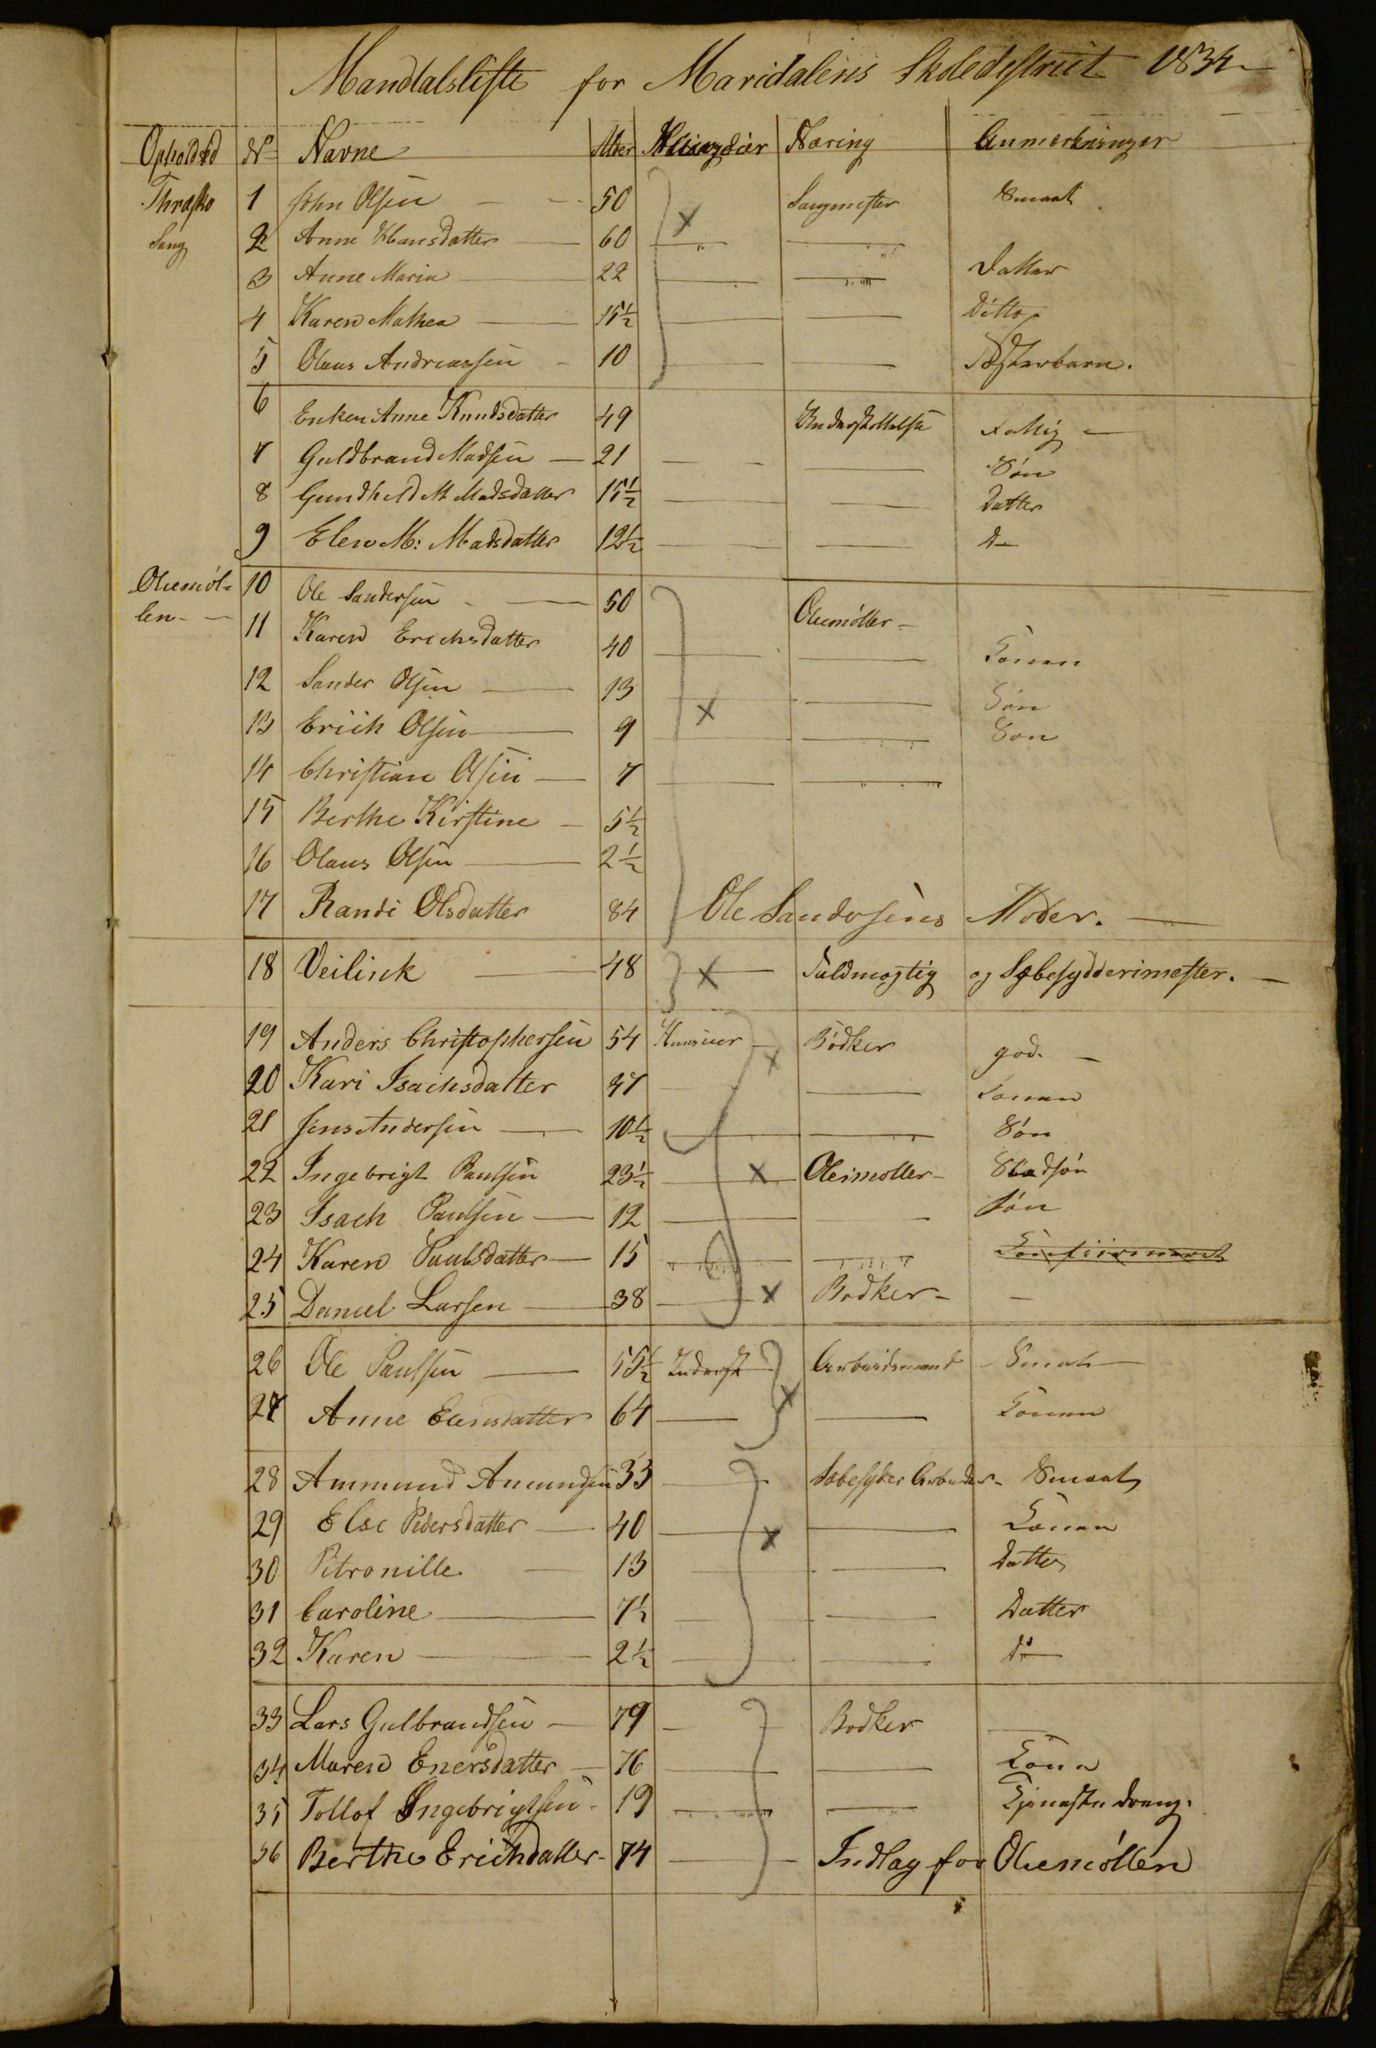 Mandtalsliste for Maridalens Skoledistrict 1834
Opholdsted No Navne Alder Næring Anmerkninger
Thraskv 1 John Olsen 50 Saugmester Smaat
Saug 2 Anne Hansdatter 60
3 Anne Maria 22 Datter
4 Karen Mathea 15 1/2 Ditto
5 Olaus Andreassen 10 Pleierbarn.
6 Enken Anne Knudsdatter 49 Understøttelse Fattig
7 Guldbrand Madsen 21 Søn
8 Gundhild M Madsdatter 15 1/2 Datter
9 Elen M: Madsdatter 12 1/2 D
Oliemøl= 10 Ole Sandersen 50 Oliemøller
len 11 Karen Erichsdatter 40 Konen
12 Sander Olsen 13 Søn
13 Erich Olsen 9 Søn
14 Christian Olsen 7
15 Berthe Kirstine 5 1/2
16 Olaus Olsen 2 1/2
17 Randi Olsdatter 84 Ole Sandersens Moder.
18 Veilink 48 Fuldmægtig og Sæbesydderimester.
19 Anders Christophersen 54 Huuseier Bødker god.
20 Kari Isachsdatter 37 Konen
21 Jens Andersen 10 1/2 Søn
22 Ingebrigt Paulsen 23 1/2 Oliemøller Stedsøn
23 Isach Paulsen 12 Søn
24 Karen Paulsdatter 15 Confiirmeret
25 Daniel Larsen 38 Bødker
26 Ole Paulsen 55 1/2 Inderst Arbeidsmand Smaat
27 Anne Enersdatter 64 Konen
28 Ammund Amundsen 33 Sæbesyder Arbeider Smaat
29 Else Pedersdatter 40 Konen
30 Petronille 13 Datter
31 Caroline 7 1/2 Datter
32 Karen 2 1/2 Do
33 Lars Gulbrandsen 79 Bødker
34 Maren Enersdatter 76 Kone
35 Tollof Ingebrigtsen 19 Tjeneste dreng.
36 Berthe Erichdatter 74 Indlag for Oliemøllen